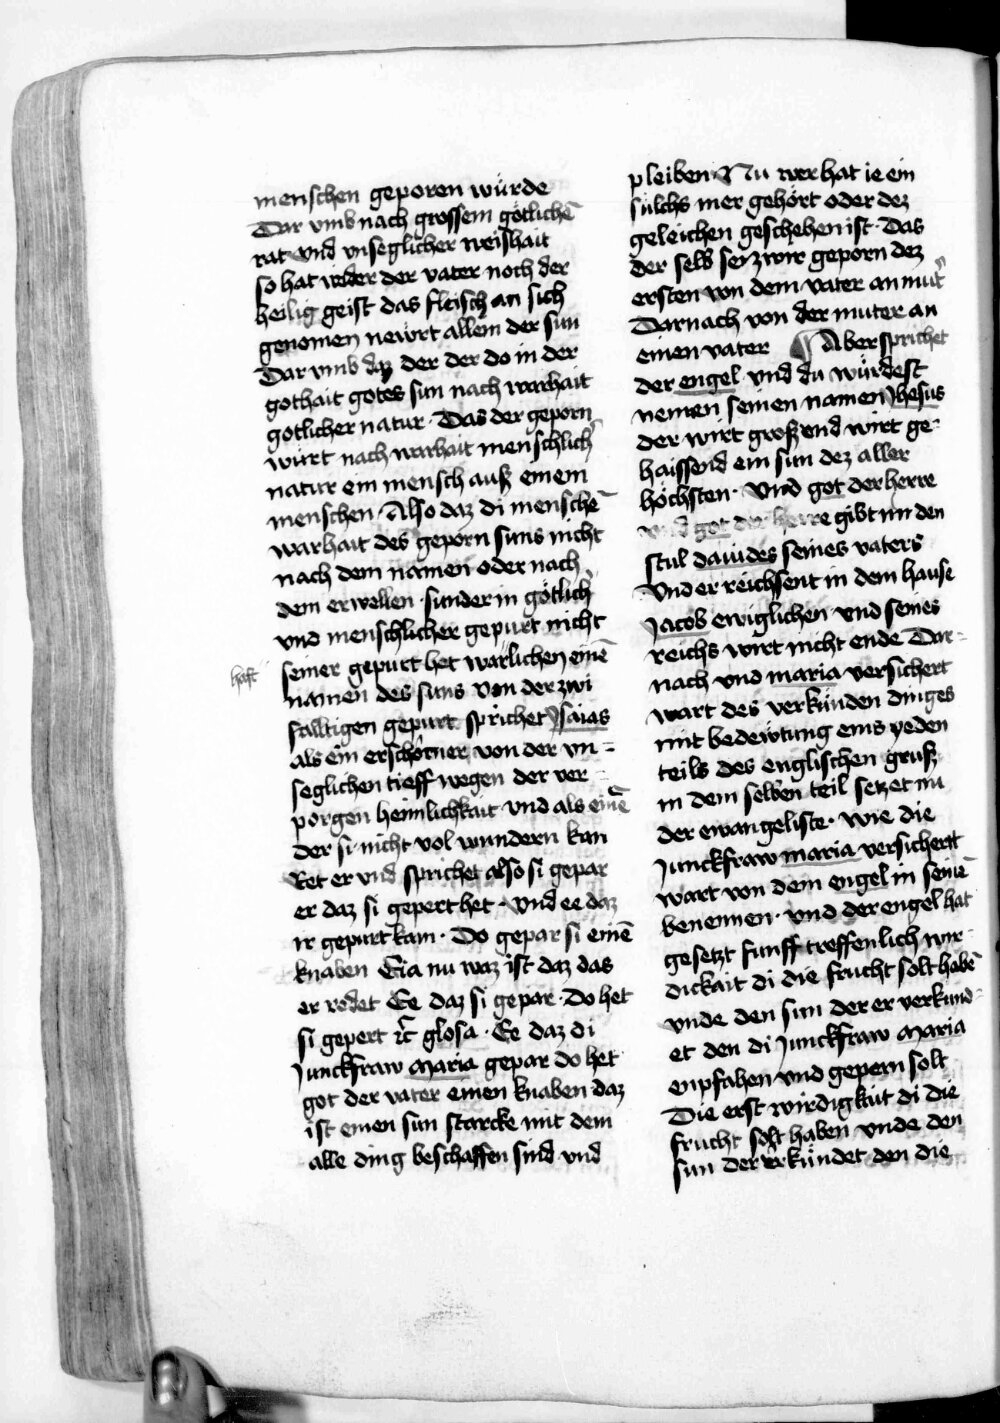 menschen geporen würde
Dar vmb nach grossem götlichē
rat vnd vnseglicher weishait
so hat weder der vater noch der
heilig geist das fleisch an sich
genomen newrt allein der sun
Dar vmb daz der der do in der
gothait gotes sun nach warhait
gotlicher natur · Das der geporn
würt nach warhait menschlich
natur ein mensch auß einem
menschen · Also daz di menschē
warhait des geporn suns nicht
nach dem namen oder nach
dem erwellen · sunder in götlich
vnd menschlicher gepurt nicht
seiner gepurt het warlichen einē
haft
namen des suns von der zwi
faltigen gepurt sprichet Jsaias
als ein erschrocner von der vn =
seglichen tieff wegen der ver =
porgen heimlichkait vnd als einē
der si nicht vol wundern kan
Ret er vnd sprichet also si gepar
er daz si gepert het · vnd ee daz
ir gepurt kam · Do gepar si einē
knaben Eia nu waz ist daz das
er redet Ee daz si gepar · Do het
si gepert rc̄ glosa · Ee daz di
Junckfraw maria gepar do het
got der vater einen knaben daz
ist einen sun starcke mit dem
alle ding beschaffen sind vnd
pleiben Nu wer hat ie ein
sülchs mer gehört oder dez
geleichen geschehen ist · Das
der selb sey zwir geporn dez
ersten von dem vater an mut̄
Darnach von der muter an
einen vater ¶ Aber sprichet
der engel vnd du würdest
nennen seinen namen Jhesus
der wirt groß vnd wirt ge =
haissend ein sun dez aller
höchsten · vnd got der herre
vnd got der herre gibt im den
stul dauides seines vaters
Vnd er reichsent in dem hause
Jacob ewiglichen vnd seines
reichs wirt nicht ende Dar =
nach vnd maria versichert
wart des verkünden dinges
mit bedewtung eins yeden
teils des englischen gruß
in dem selben teil setzet nu
der ewangeliste · wie die
Junckfraw maria versichert
wart von dem engel in seinē
benennen · vnd der engel hat
gesetzt funff treffenlich wir =
dickait di die frucht solt habē
vnde den sun der er verkund =
et den di Junckfraw maria
enpfahen vnd gepern solt
Die erst wirdigkait di die
frucht solt haben vnde den
sun der er kündet den die